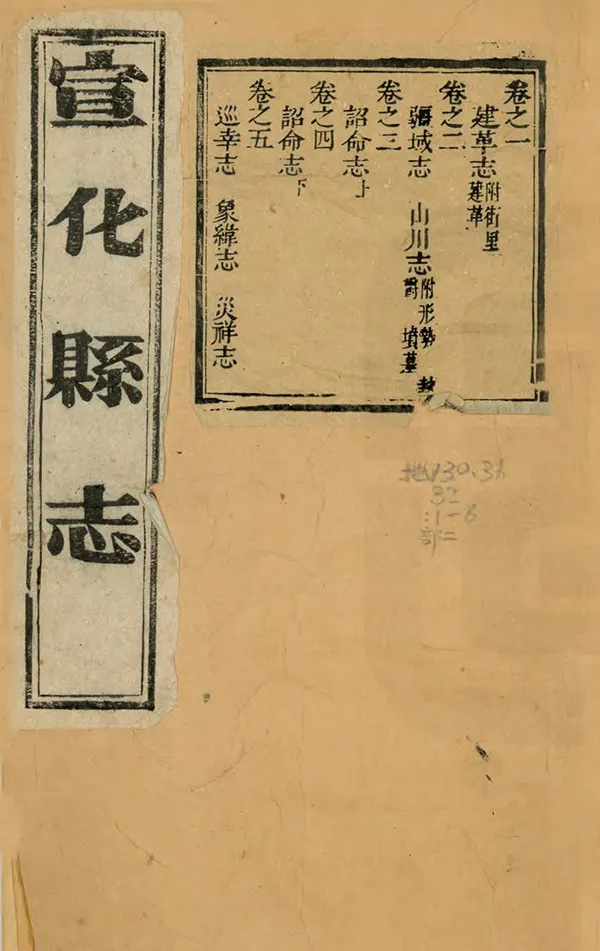 宣化縣志
卷之一
建革志 附街里建革
卷之二
疆域志 山川志 附形勢 封爵 墳墓
卷之三
詔命志上
卷之四
詔命志下
卷之五
巡幸志 象緯志 災祥志
地130.36
32
:1-6
部二